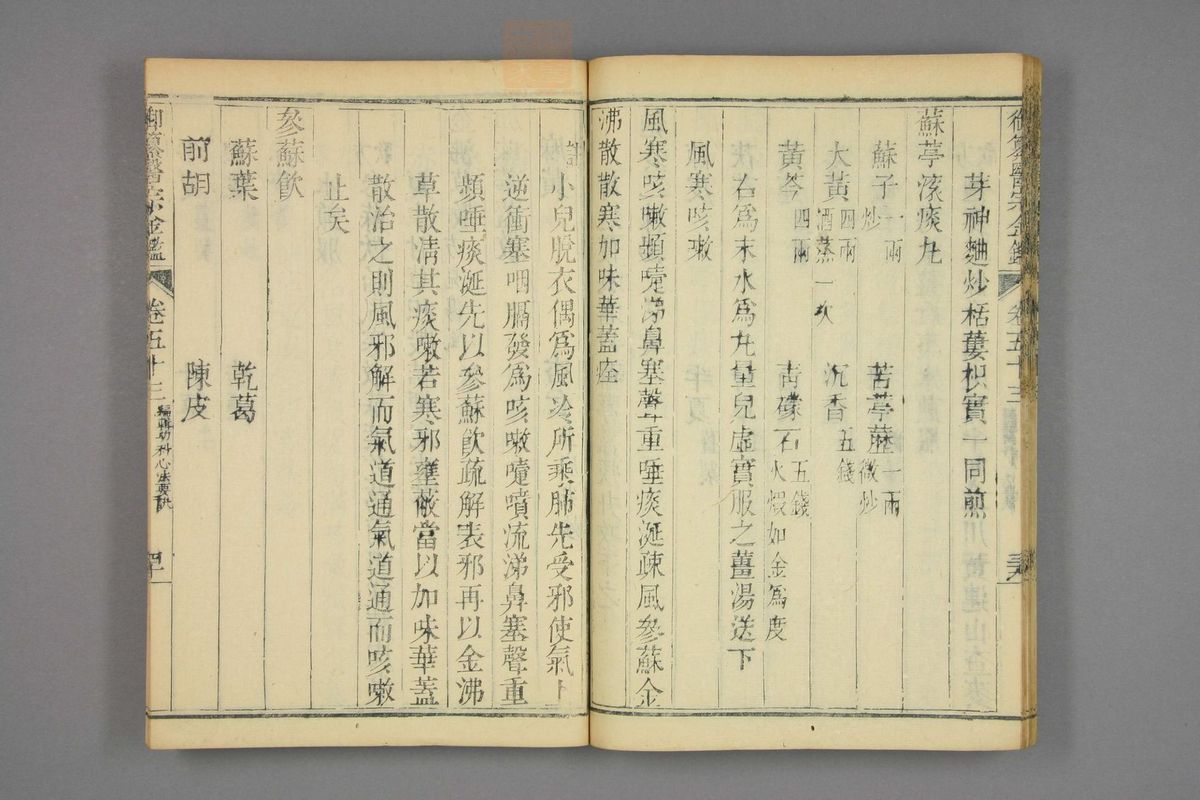 御纂醫宗金鑑 卷五十三
芽神麯炒栝蔞枳實一同煎
蘇葶滚痰丸
蘇子一兩炒 苦葶藶一兩微炒
大黃四兩酒蒸一次 沉香五錢
黃芩四兩 青礞石五錢火煆如金為度
右為末水為丸量兒虛實服之薑湯送下
風寒咳嗽
風寒咳嗽頻嚏涕鼻塞聲重唾痰涎疎風參蘇金
沸散散寒加味華蓋痊
註小兒脫衣偶為風冷所乘肺先受邪使氣上
逆衝塞咽膈發為咳嗽嚏噴流涕鼻塞聲重
頻唾痰涎先以參蘇飲疏解表邪再以金沸
草散清其痰嗽若寒邪壅蔽當以加味華蓋
散治之則風邪解而氣道通氣道通而咳嗽
止矣
參蘇飲
蘇葉 乾葛
前胡 陳皮
御纂醫宗金鑑 卷五十三 編輯幼科心法要訣